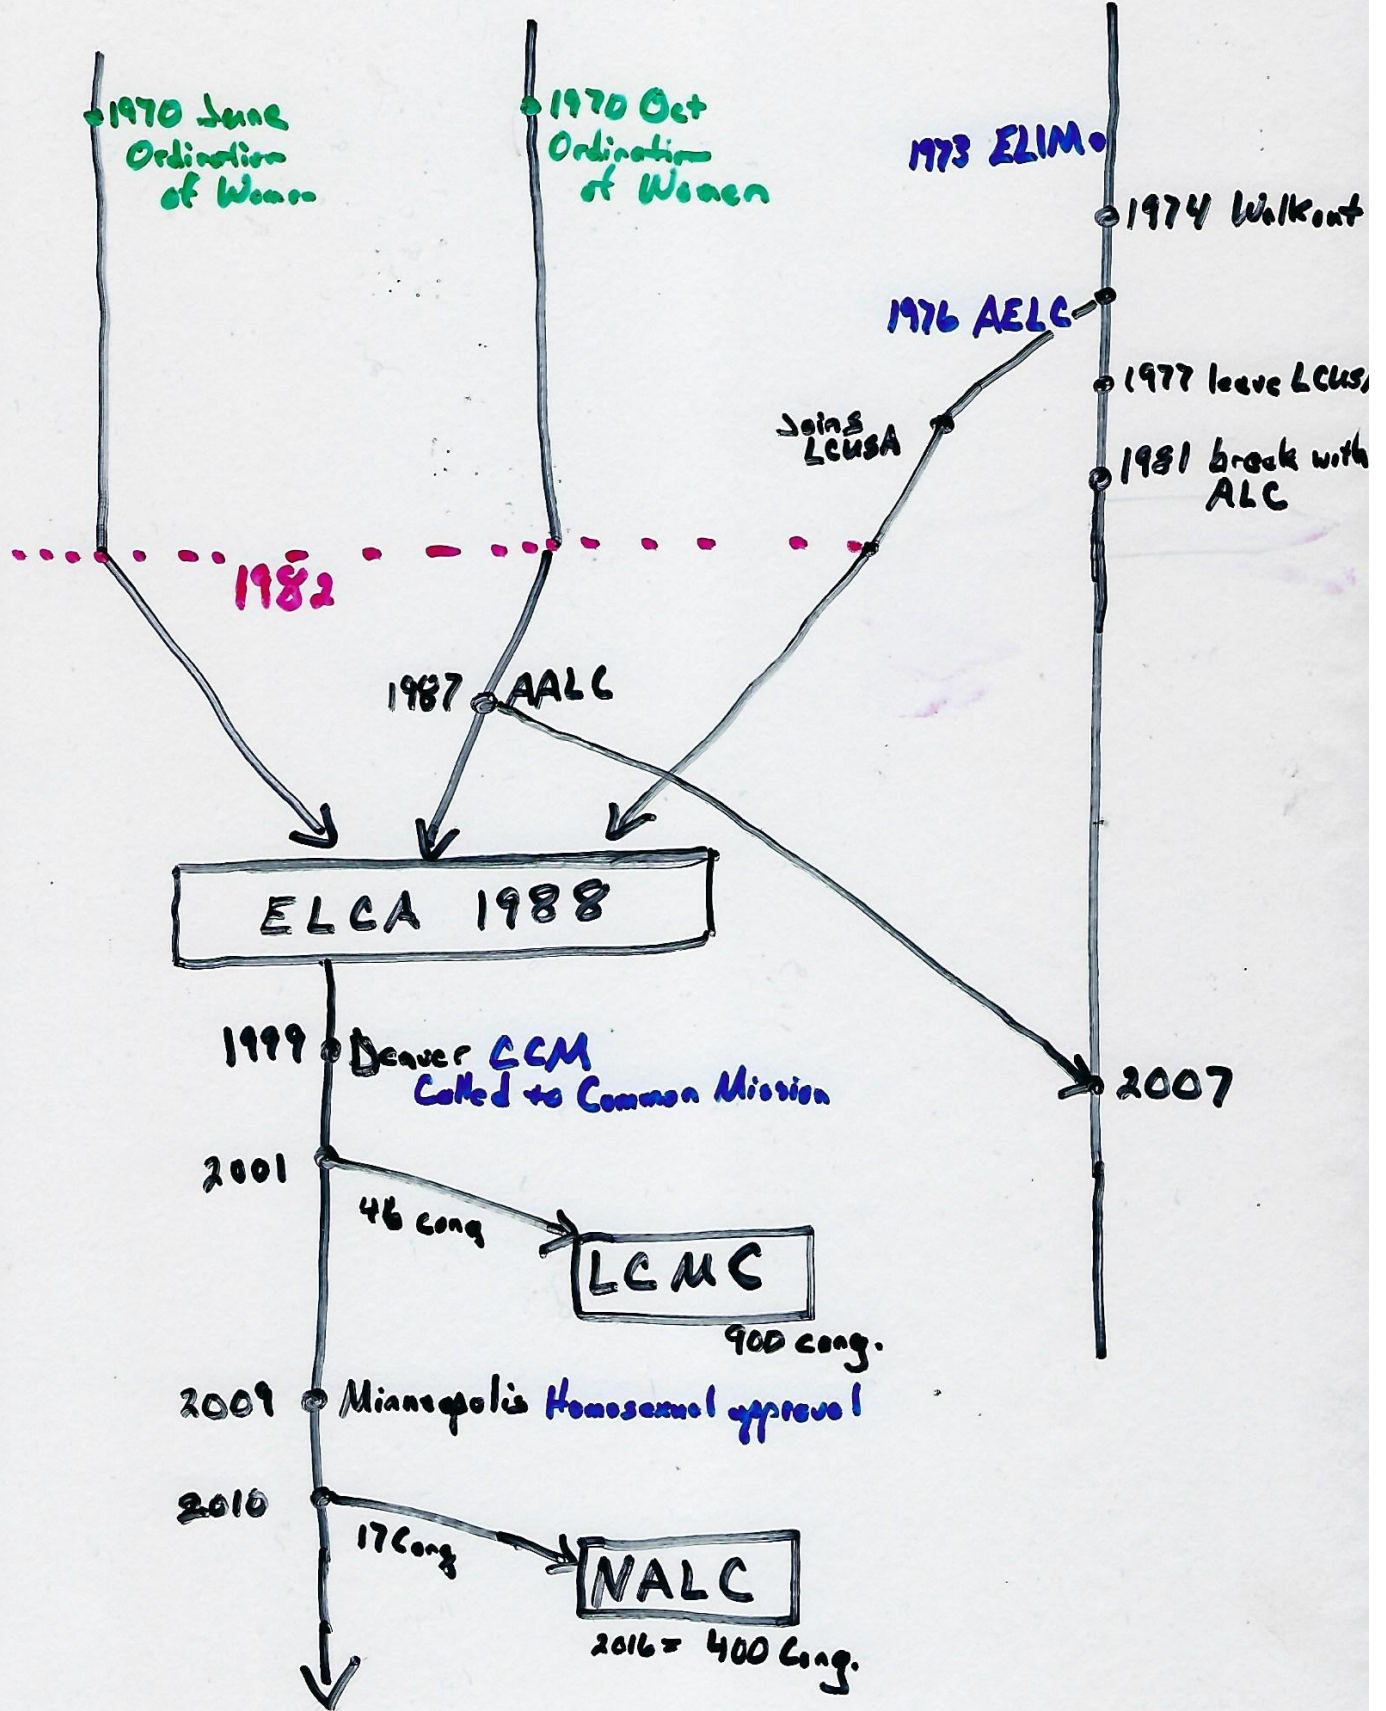 1970 June
Ordination
of Women
1970 Oct
Ordination
of Women
1973 ELIM
1974 Walkout
1976 AELC
1977 leave LCUSA
Joins
LCUSA
1981 break with
ALC
1982
1987 AALC
ELCA 1988
1999 Denver CCM
Called to Common Mission
2007
2001
46 cong
LCMC
900 cong.
2009 Minneapolis Homosexual approval
2010
17 Cong
NALC
2016 = 400 Cong.